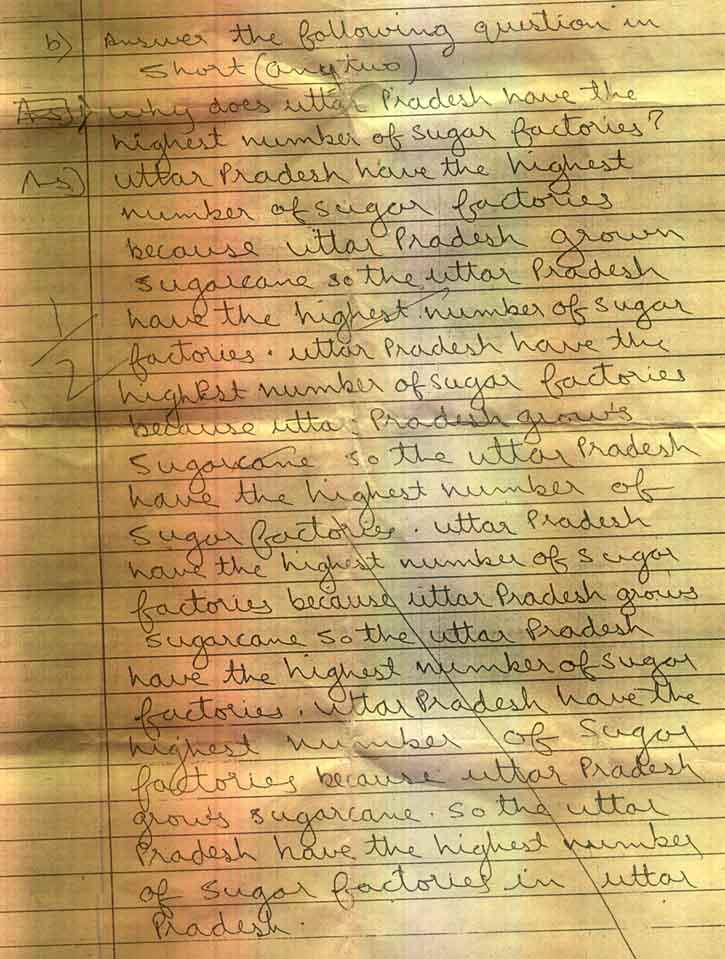 b) Answer the following question in
short (any two)
As) why does uttar Pradesh have the
highest number of sugar factories?
As) uttar Pradesh have the highest
number of sugar factories
because uttar Pradesh grown
sugarcane so the uttar Pradesh
have the highest number of sugar
factories. uttar Pradesh have the
highest number of sugar factories
because uttar Pradesh grows
sugarcane so the uttar Pradesh
have the highest number of
sugar factories. uttar Pradesh
have the highest number of sugar
factories because uttar Pradesh grows
sugarcane so the uttar Pradesh
have the highest number of sugar
factories. uttar Pradesh have the
highest number of sugar
factories because uttar Pradesh
grows sugarcane. so the uttar
Pradesh have the highest number
of sugar factories in uttar
Pradesh.
1/2